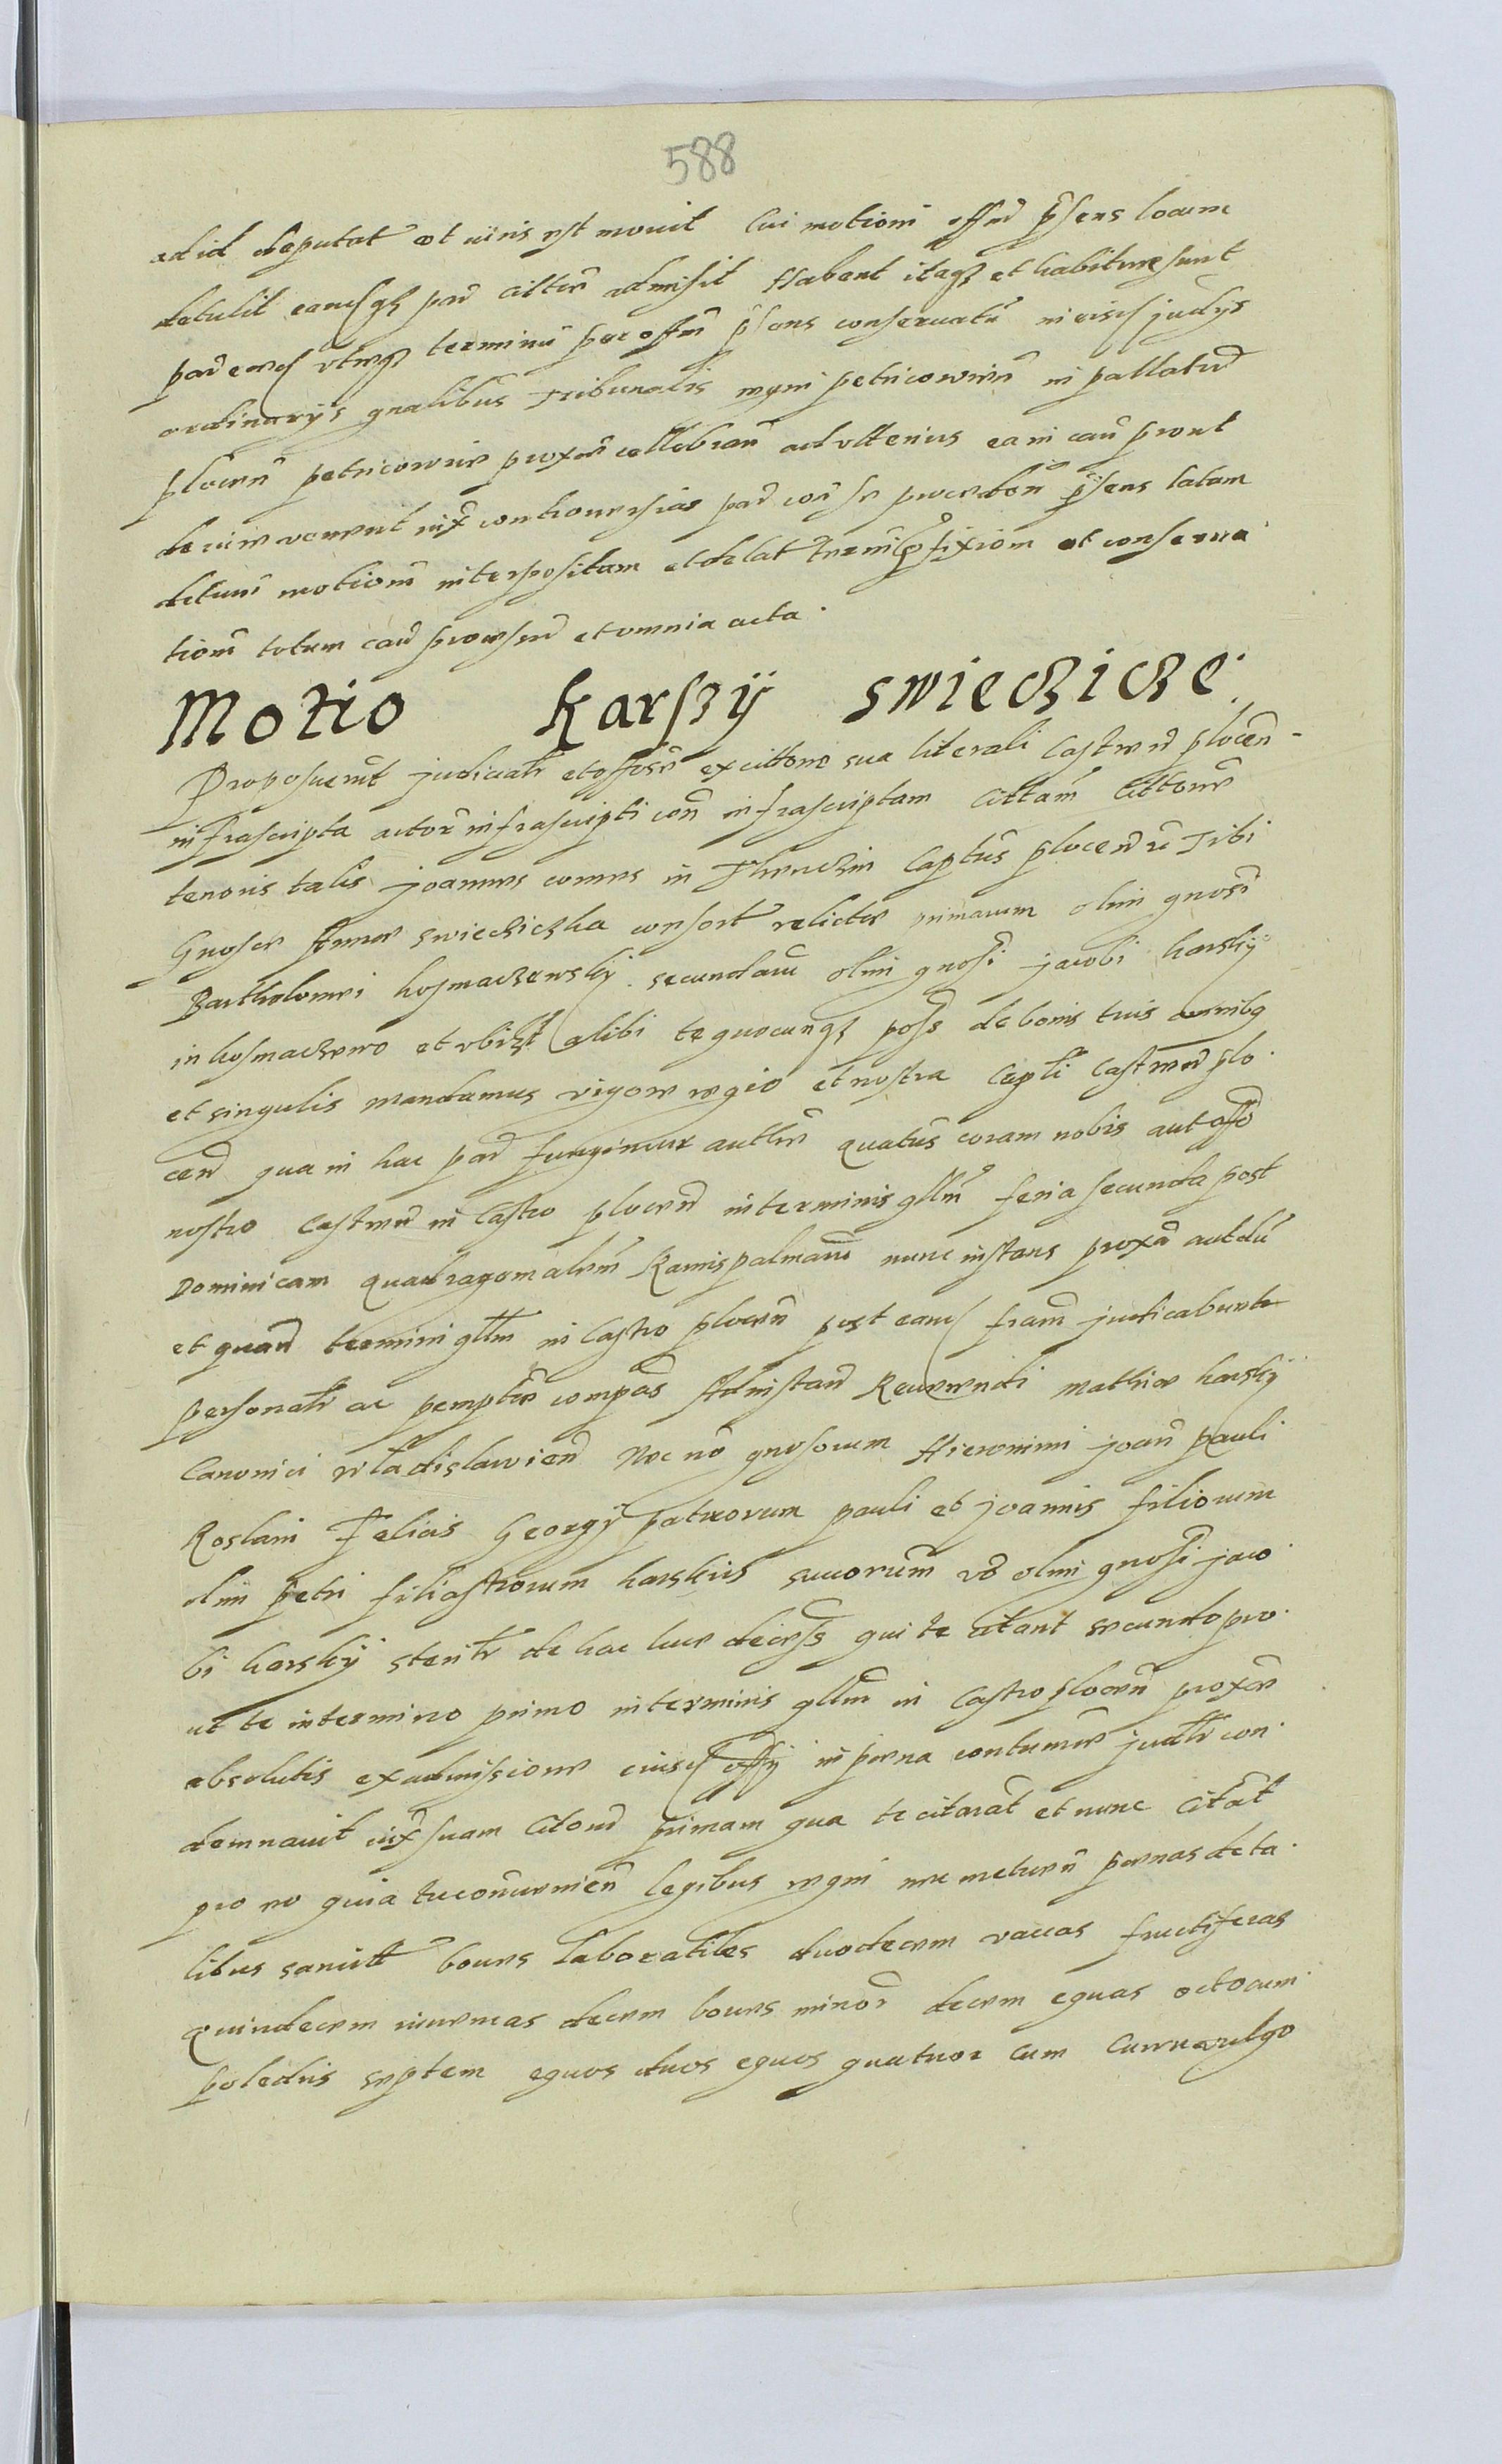 588
ad id deputat et iuris est mouit Cui motioni offm p̃sens locum
detulit eamq3 par cittã admisit Habent itaq3 et habituræ sunt
par eæd vtræq3 terminũ per offm p̃sens conseruatũ in eisd judÿs
ordinarÿs gnalibus Tribunalis regni petricouien̄ in pallatio
plocen̄ petricouiæ proxime cellebran̄ ad vlterius ea in cau pront
de iure venerit iux̃ controuersias par cor̃ se procedeñ p̃sens latam
detum̃ motionẽ interpositam et delat termini p̃fixiom et conserua
tionẽ totum cau processum et omnia acta
Motio Karskÿ swieczicze
Proposuerunt judicialr̃ et officiosẽ ex cittone sua literali Castren̄ plocen̄
infrascripta actor infrascripti con̄ infrascriptam Cittam Cittonis
tenoris talis joannes comes in Thenczin Captũs plocen̄ zc Tibi
Gnosæ Annæ swiecziczka consort relictæ primarum olim gnosi
Bartholomei kosmaczewskÿ secundarũ olim gnosi jacobi karskÿ
in kosmaczewo et vbiq3 alibi te quocunq3 poss̃ de bonis tuis omnibq
et singulis mandamus vigore regio et nostra Capti Castren̄ plo
cen̄ qua in hac par fungimur auttẽ quatũs coram nobis aut offo
nostro Castren̄ in Castro plocen̄ in terminis gllm̃ feria secunda post
Dominicam quadragesimalem̃ Ramispalmarũ nunc instans proxã aut dũ
et quan̄ termini gllm̃ in Castro plocen̄ post eand feriam̃ judicabuntr
personalr̃ ac pemptẽ compas̃ Ad instan̄ Reuerendi mathiæ karskÿ
Canonici wladislawien̄ Nec nõ gnosorum Hieronimi joan̄ pauli
Roslani Felicis Georgÿ patruorum pauli et joannis filiorum
olim petri filiastrorum karskich succorum̃ võ olim gnosi jaco
bi karskÿ sterilr̃ de hac luce decess̃ qui te citant secundo pro
ut te in termino primo in terminis gllm̃ in Castro plocen̄ proxme
absolutis ex admissione eiusd offÿ in pæna contumæ judlr̃ con
demnauit iux̃ suam Citom̃ primam qua te citarat̃ et nunc citãt
pro eo quia tu conueniẽn legibus regni nec metuen̄ pænas de ta
libus sancit boues laboratiles duodecem vaccas fructiferas
quindecem iuuencas decem boues minor̃ decem equas octo cum
poledris septem equos duos equos quatuor cum curru vulgo